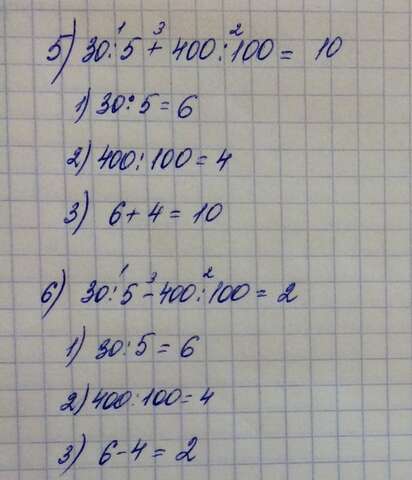 5) 30:5 + 400:100 = 10
1 3 2
1) 30:5 = 6
2) 400:100 = 4
3) 6 + 4 = 10
6) 30:5 - 400:100 = 2
1 3 2
1) 30:5 = 6
2) 400:100 = 4
3) 6 - 4 = 2